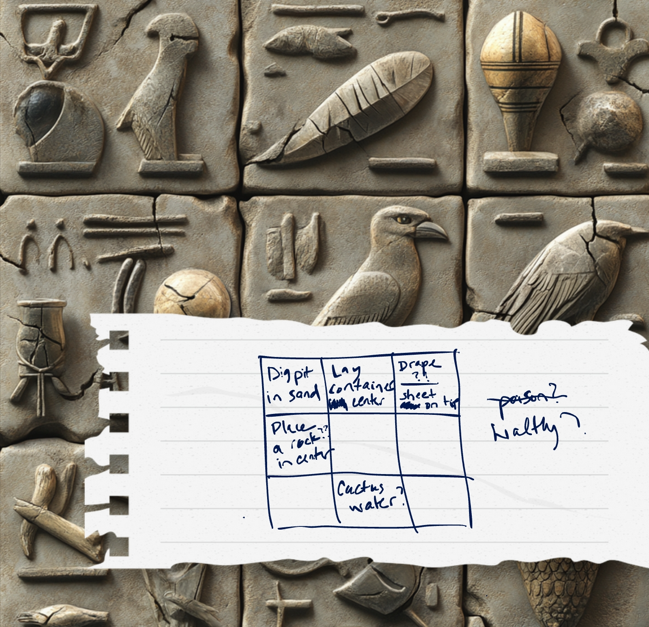 Dig pit
in sand
Lay
container
center
Drape
??
sheet
on top
Place ??
a rock
in center
Cactus ?
water
person?